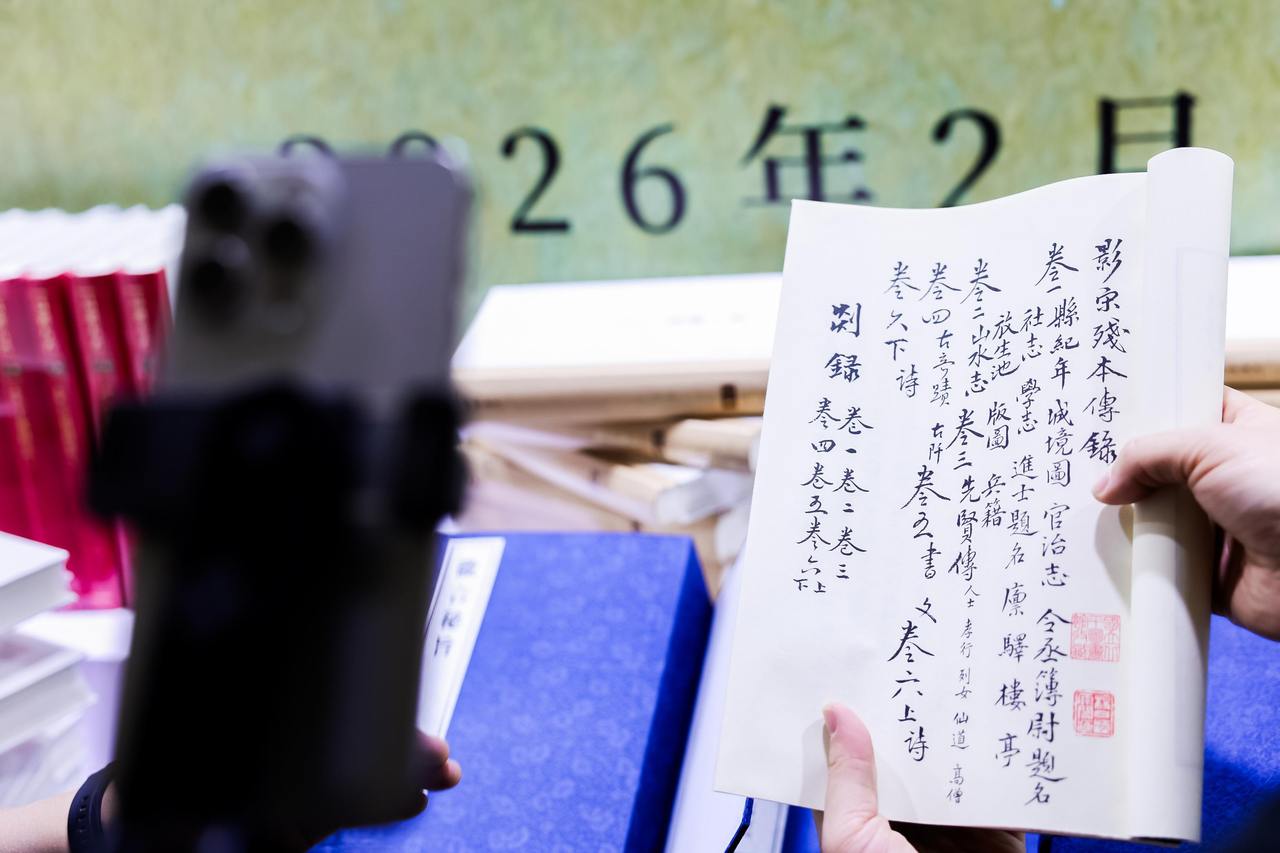 2026年2月
影宋殘本傳錄
卷一 縣紀年 城境圖 官治志 令丞簿尉題名
社志 學志 進士題名 廩 驛 樓 亭
放生池 版圖 兵籍
卷二 山水志 卷三 先賢傳 人士 孝行 列女 仙道 高僧
卷四 古奇蹟 古阡 卷五 書 文 卷六上 詩
卷六下 詩
剡錄 卷一卷二卷三
卷四卷五卷六上下
徽言秘旨